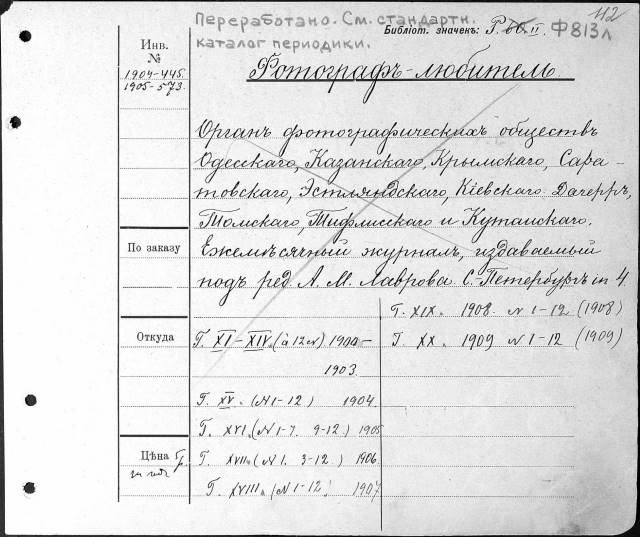 112
Переработано. См. стандартн.
каталог периодики.
Библіот. значекъ: Р. II. Ф813л
Инв.
№
1904-445.
1905-573.
Фотографъ-любитель.
Органъ фотографическихъ обществъ
Одесскаго, Казанскаго, Крымскаго, Сара-
товскаго, Эстляндскаго, Кіевскаго Дагерръ,
Томскаго, Тифлисскаго и Кутаискаго.
По заказу
Ежемѣсячный журналъ, издаваемый
подъ ред. А. М. Лаврова. С.-Петербургъ in 4.
Г. XIX. 1908. N 1-12 (1908)
Откуда
Г. XI-XIV. (à 12 N) 1900-
1903.
Г. XX. 1909 N 1-12 (1909)
Г. XV. (N 1-12) 1904.
Г. XVI. (N 1-7. 9-12.) 1905
Цѣна
Г. XVII. (N 1. 3-12.) 1906.
Г. XVIII. (N 1-12) 1907